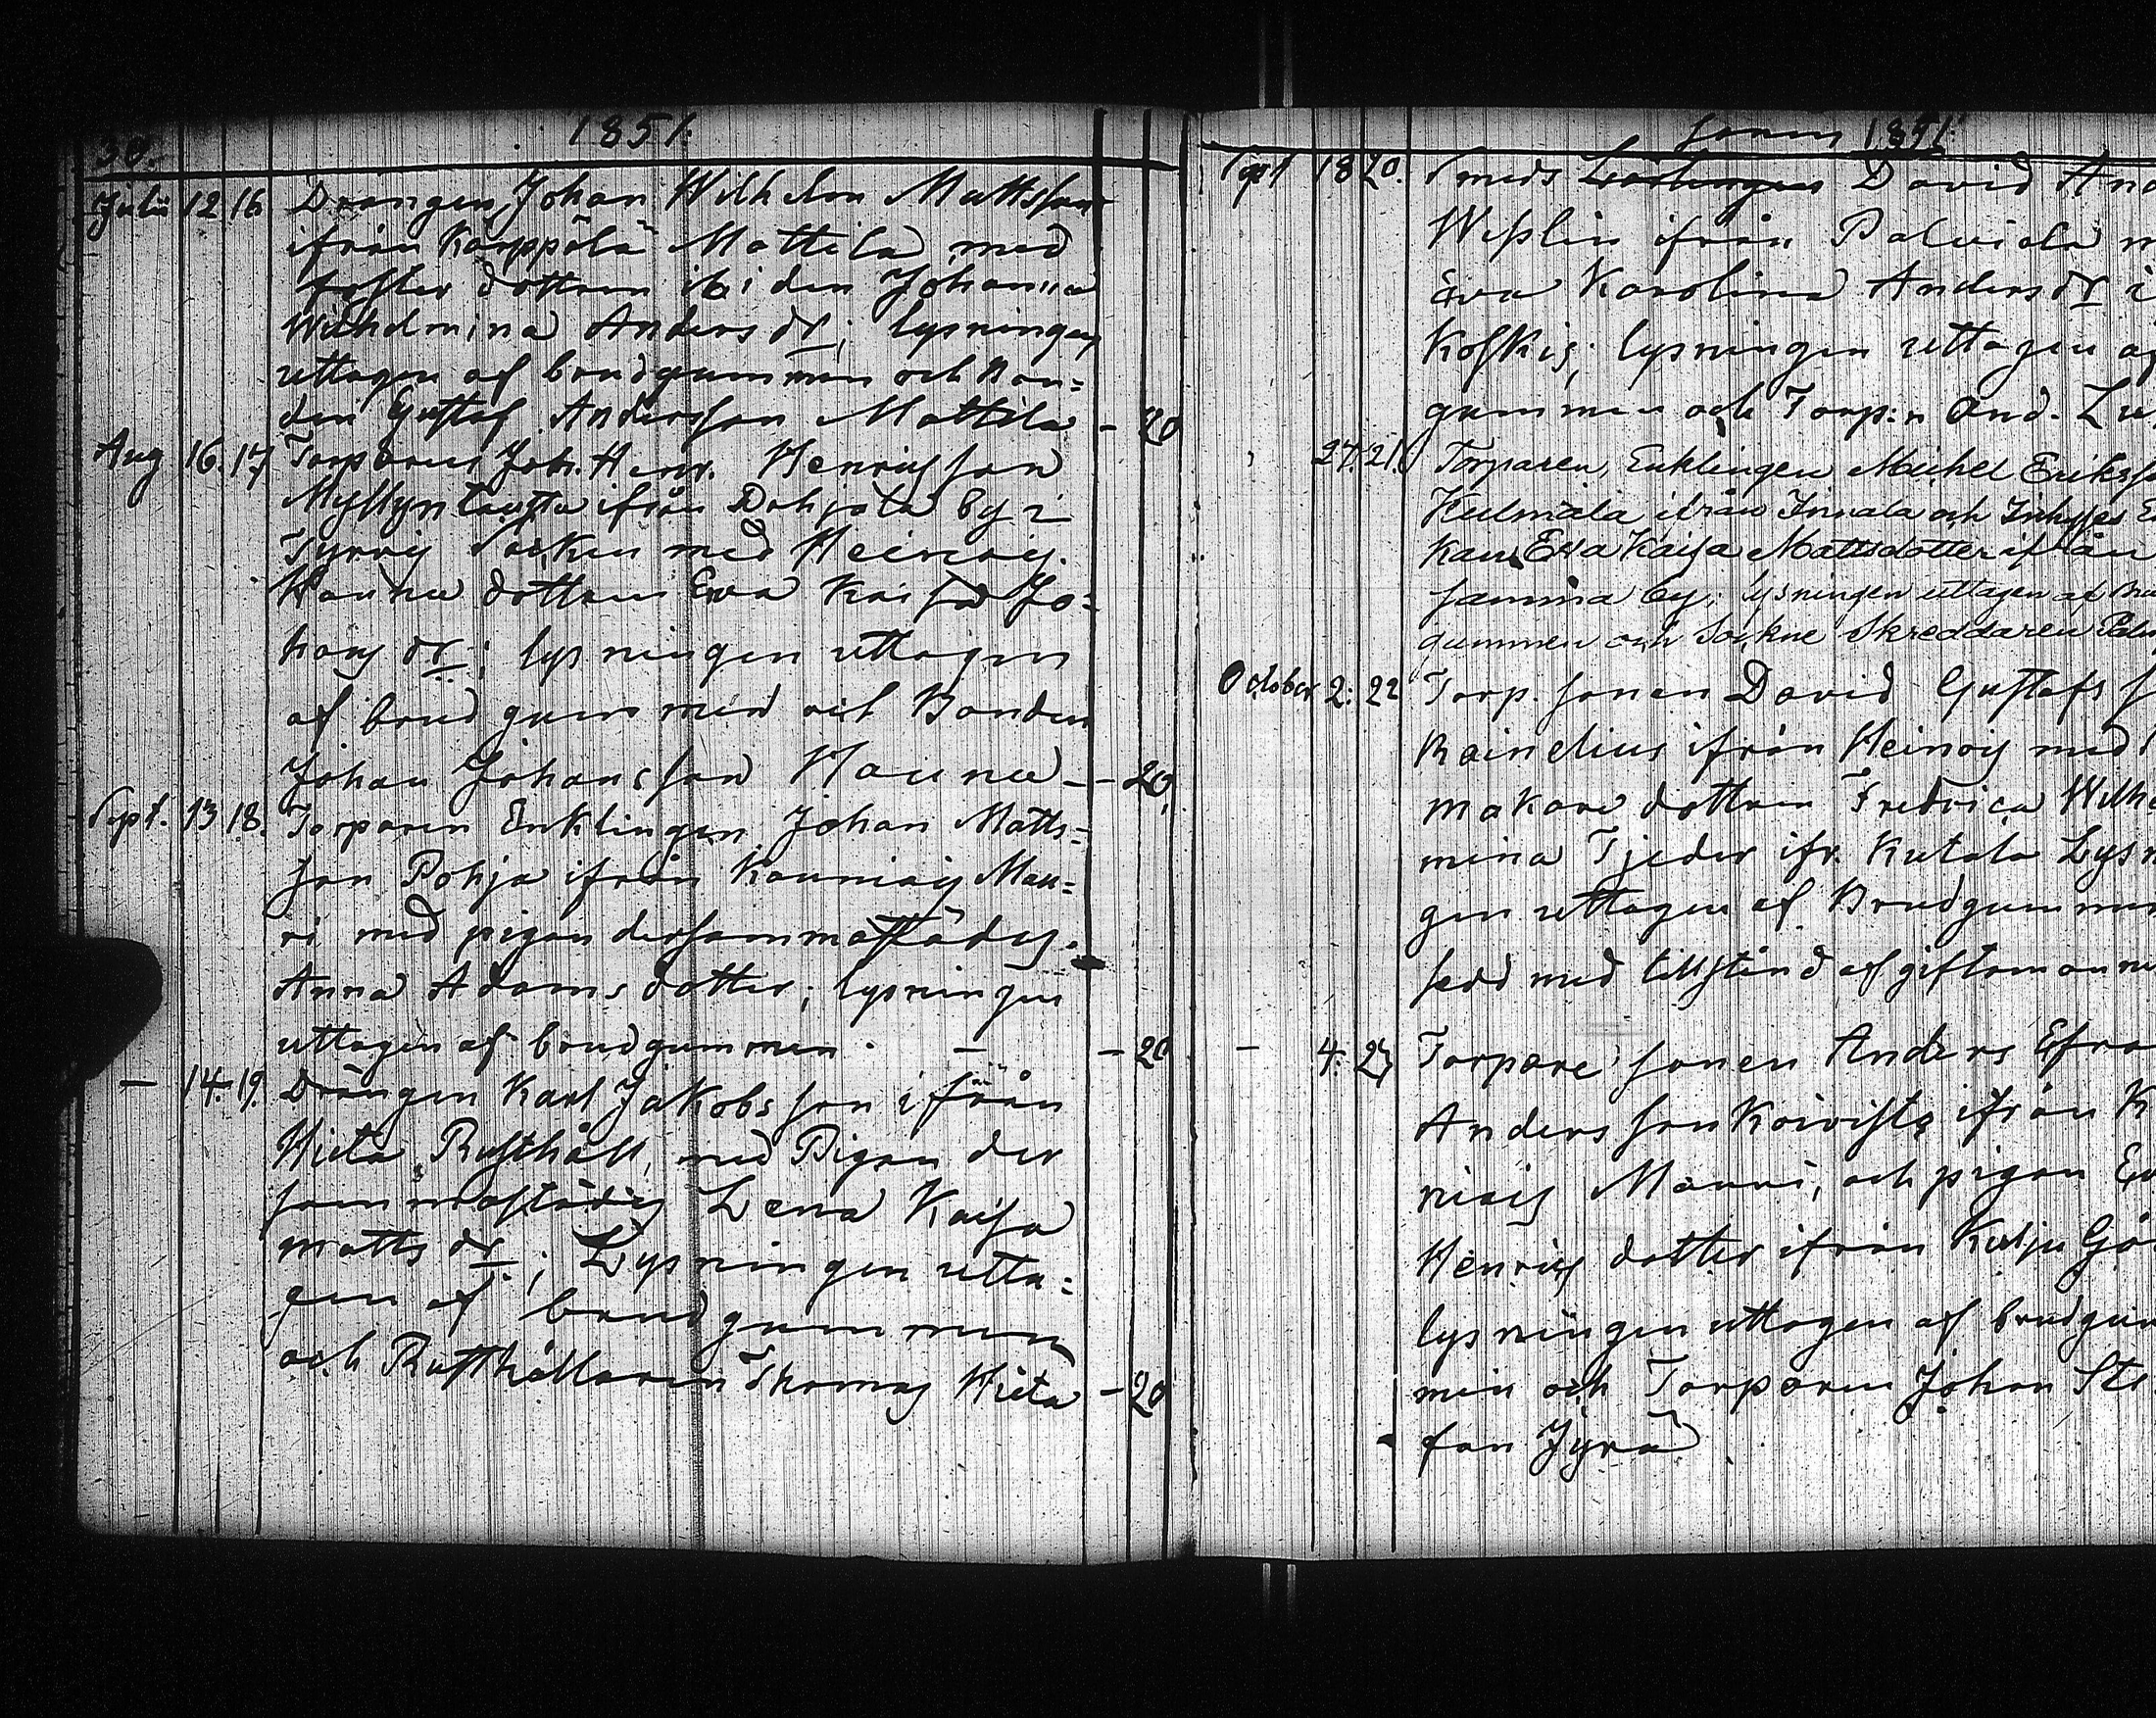 30.
1851.
Julii 12 16 Drängen Johan Wilhelm Mattsson
ifrån Karppälä Mattila med
foster dottren ibiden Johanna
Wilhelmina Anders dr; lysningen
uttagen af brudgummen och Bon=
den Gustaf Andersson Mattila - 20
Aug 16. 17 Torparen Joh. Henr. Henriksson
Myllyntausta ifrån Pohjola by i
Tyrvis Socken med Heinois
Hauna dottren Eva Kaisa Jo=
hans dr; lysningen uttagen
af brudgummen och Bonden
Johan Johansson Hauna - 20
Sept. 13 18. Torparen Enklingen Johan Matts=
son Pohja ifrån Kauniais Mau=
ri med pigan dersammastädes
Anna Adamsdotter; lysningen
uttagen af brudgummen. - - 20
- 14. 19. Drängen Karl Jakobsson ifrån
Hieta Rusthåll, med Pigan der
sammastädes Lena Kaisa
Matts dr; Lysningen utta=
gen af brudgummen
och Rusthållaren Thomas Hieta - 20
1851.
Sept 18 20. Smeds David And
Weslin ifrån Palviala m
Eva Karolina Anders dr i
Koskis; lysningen uttagen af
gummen och Torp:n And. Lu
27. 21. Torparen, Enklingen Michel Eriks
Kulmala ifrån Innala och Inhyses E
kan Eva Kaisa Mattsdotter ifrån
samma by; lysningen uttagen af Bru
gummen och Sockne Skreddaren Pal
October 2. 22 Torp. sonen David Gustafs s
Reinelius ifrån Heinois med
makare dottren Fredrica Wilhel
mina Tjeder ifr. Kutala Lysn
gen uttagen af Brudgummen
sedd med tillstånd af giftomannen
- 4. 23 Torpare sonen Anders Efra
Andersson Koivisto ifrån K
niais Mauri, och pigan Ev
Henriks dotter ifrån Kulju Gå
lysningen uttagen af brudgum
men och Torparen Johan Ste
fan Jyrä